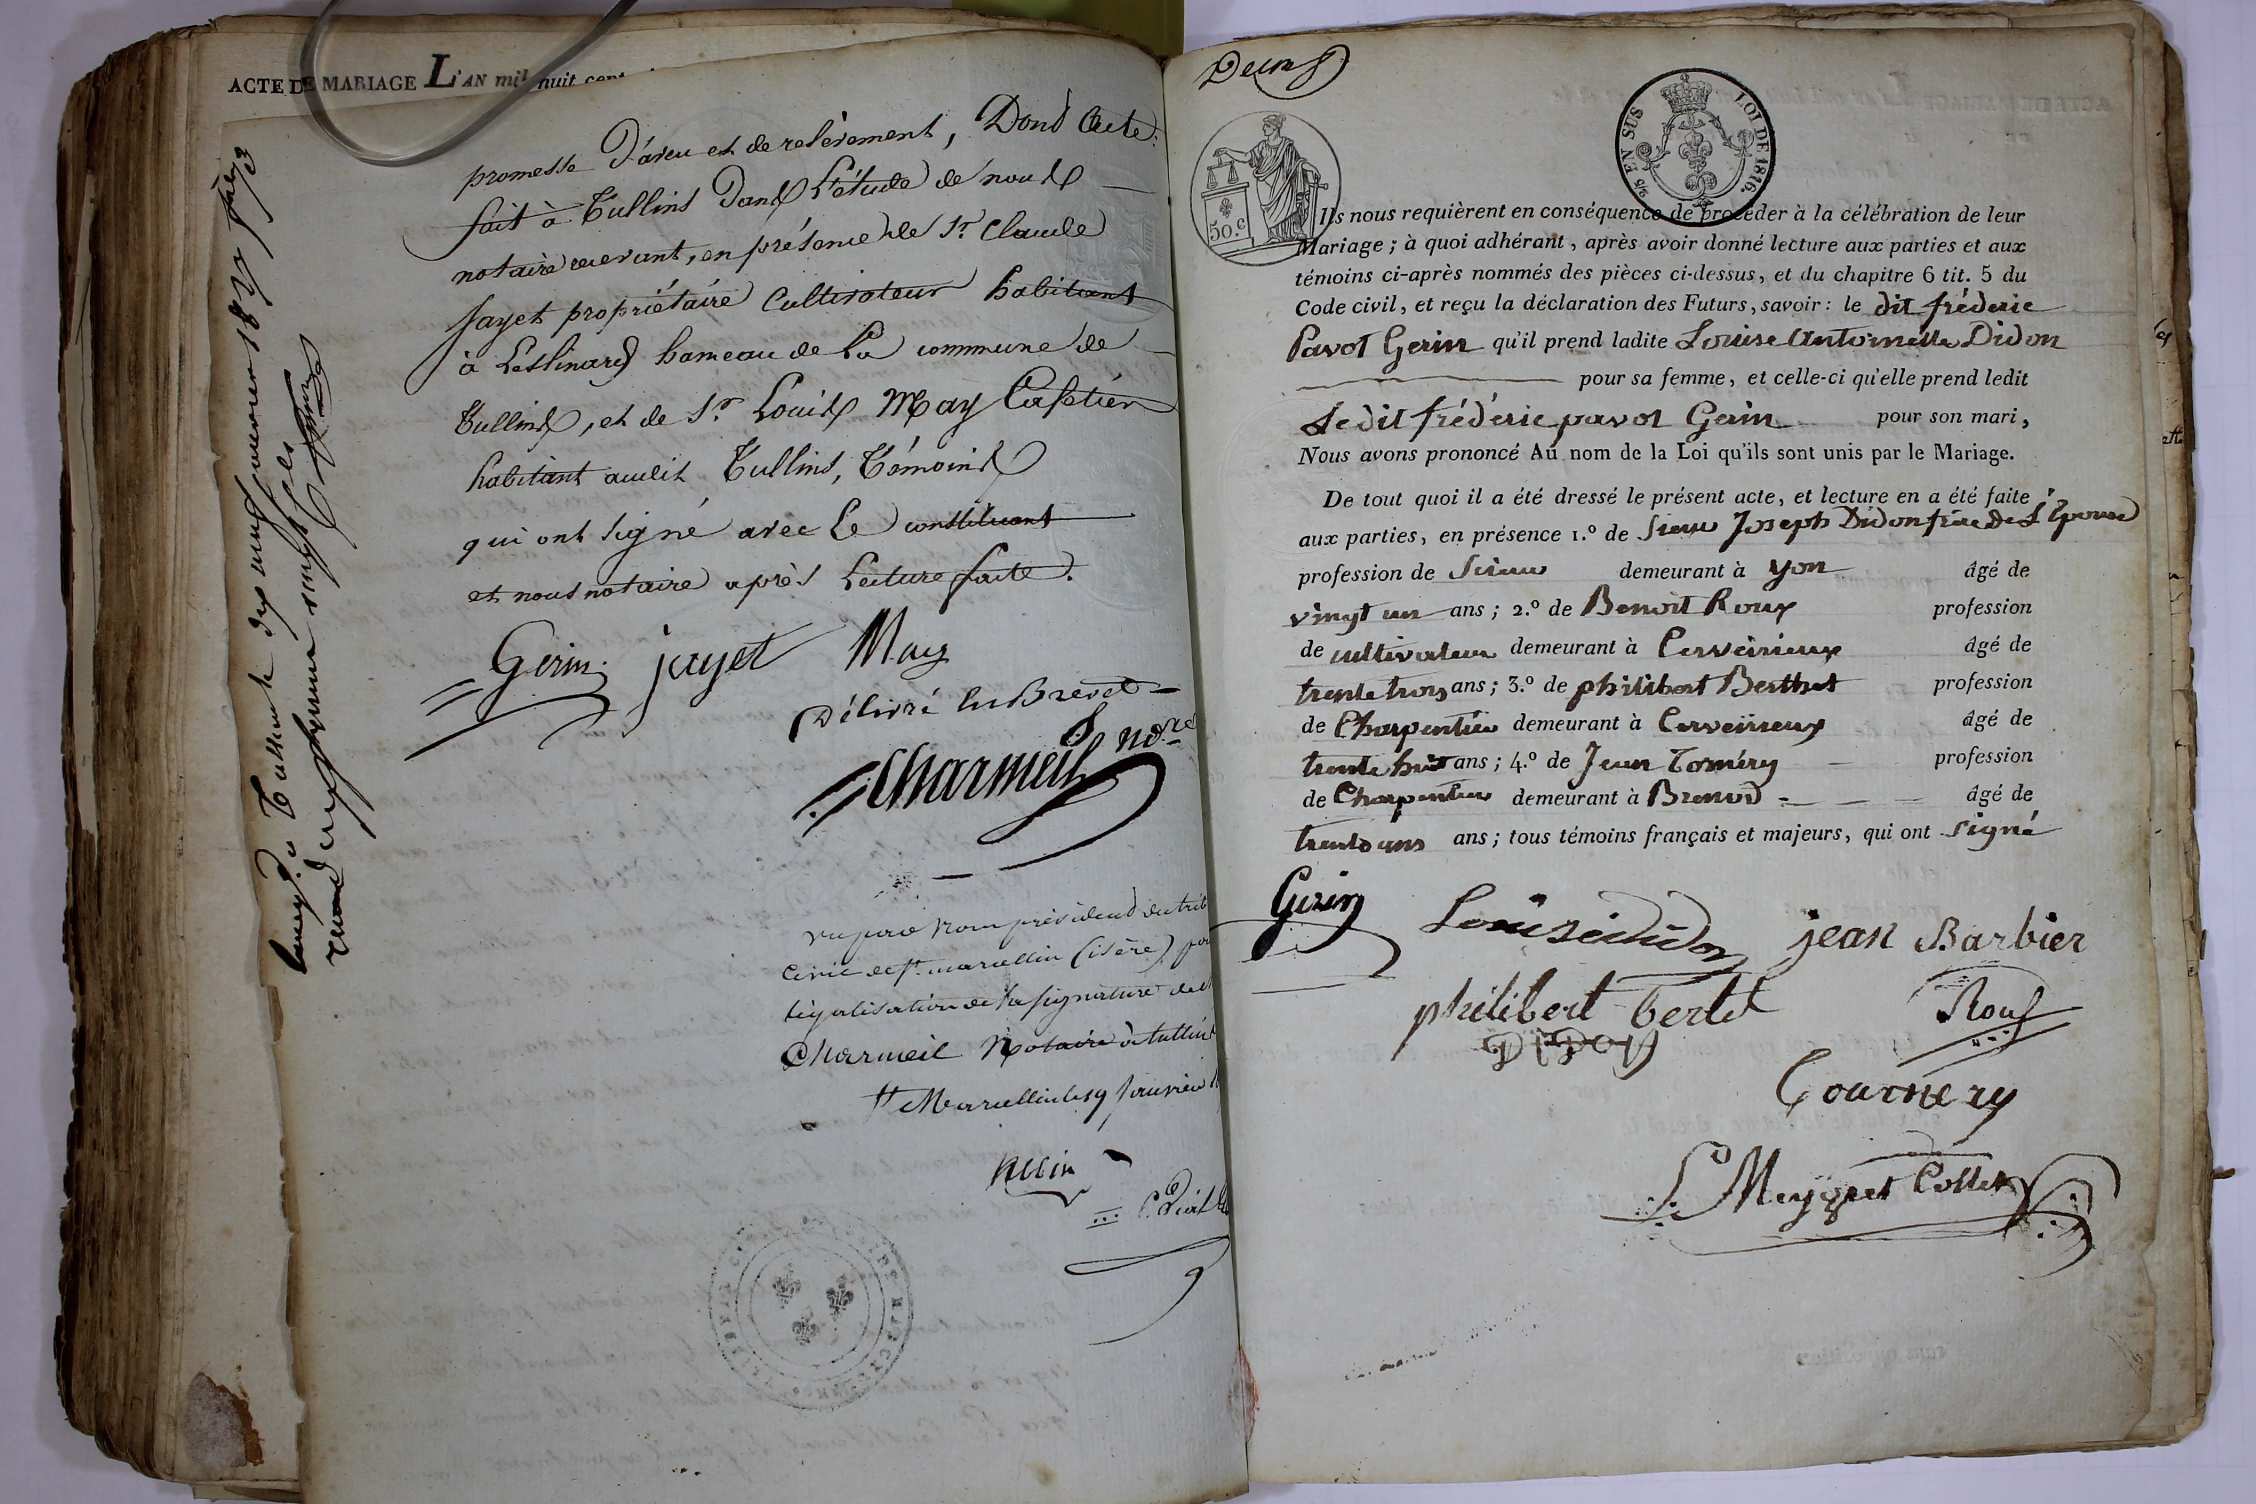 ACTE DE MARIAGE L'AN mil huit cent
promesse d'aveu et de relèvement, Dont Acte.
fait à Tullins Dans L'étude de nous
notaire recevant, en présence de Sr. Claude
Jayet propriétaire Cultivateur habitant
à Leslinard hameau de La commune de
Tullins, et de Sr. Louis May Cafetier
habitant audit Tullins, Témoins
qui ont signé avec Le constituant
et nous notaire après Lecture faite.
Gerin jayet May
Délivré En Brevet
Charmeil nore
vu par nous président du trib
civil de St. marcellin (isère) pour
légalisation de la signature de
Charmeil Notaire à tullins
St Marcellin le 9 janvier
LOI DE 1816.
EN SUS
50.c
Ils nous requièrent en conséquence de procéder à la célébration de leur
Mariage ; à quoi adhérant, après avoir donné lecture aux parties et aux
témoins ci-après nommés des pièces ci-dessus, et du chapitre 6 tit. 5 du
Code civil, et reçu la déclaration des Futurs, savoir : le dit fréderic
Pavot Gerin qu'il prend ladite Louise Antoinette Didon
pour sa femme, et celle-ci qu'elle prend ledit
Le dit fréderic pavot Gerin pour son mari,
Nous avons prononcé Au nom de la Loi qu'ils sont unis par le Mariage.
De tout quoi il a été dressé le présent acte, et lecture en a été faite
aux parties, en présence 1.º de Sieur Joseph Didon frère de L'Epouse
profession de demeurant à yon âgé de
vingt un ans ; 2.º de Benoit Roux profession
de cultivateur demeurant à Cerveirieux âgé de
trente trois ans ; 3.º de philibert Berthet profession
de Charpentier demeurant à Cerveirieux âgé de
trente huit ans ; 4.º de Jean Tornéry profession
de Charpentier demeurant à Brenod âgé de
trente ans ans ; tous témoins français et majeurs, qui ont signé
Gerin Louise didon jean Barbier
philibert bertet Roux
DIDON
Tournery
Meygret Collet